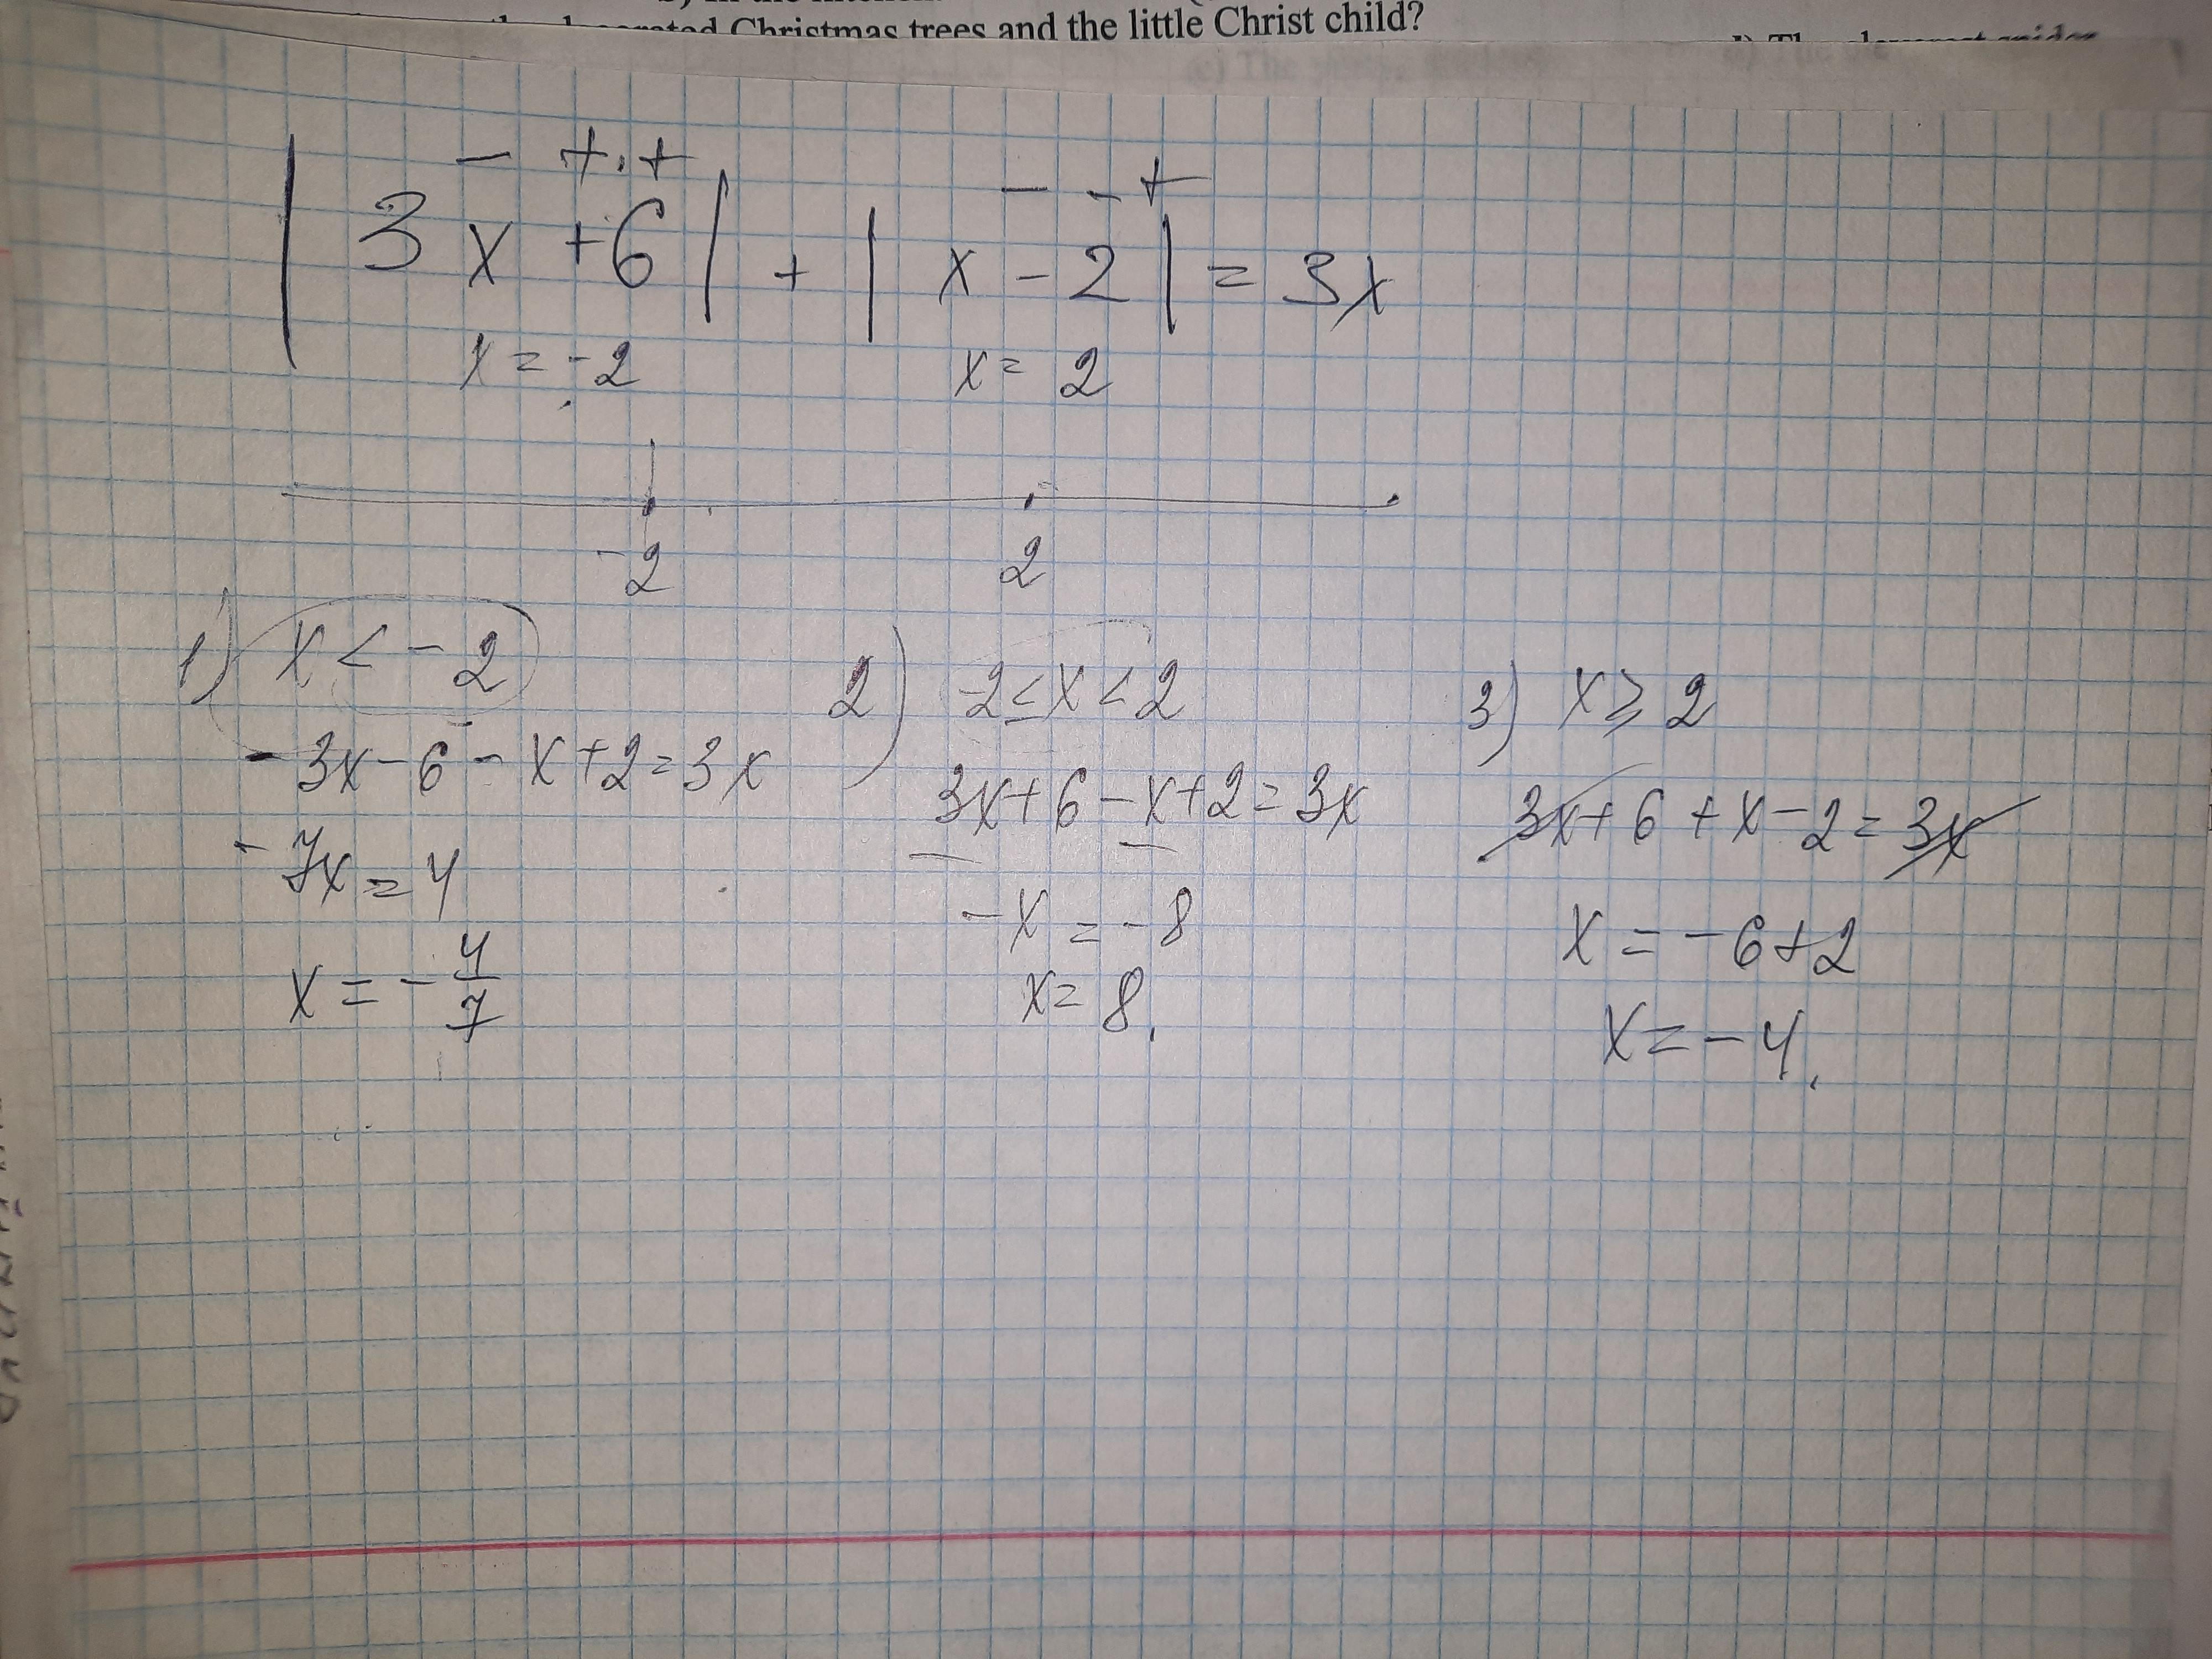 Christmas trees and the little Christ child?
- + +
- - +
|3x+6|+|x-2|=3x
x=-2
x=2
-2
2
1) x<-2
-3x-6-x+2=3x
-7x=4
x=-4/7
2) -2≤x<2
3x+6-x+2=3x
-x=-8
x=8.
3) x≥2
3x+6+x-2=3x
x=-6+2
x=-4.